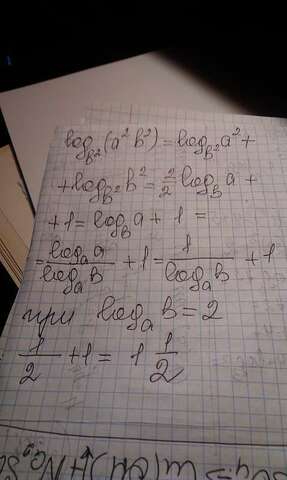 log_{b²}(a²b²) = log_{b²}a² +
+ log_{b²}b² = 2/2 log_b a +
+ 1 = log_b a + 1 =
= log_a a / log_a b + 1 = 1 / log_a b + 1
при log_a b = 2
1/2 + 1 = 1 1/2